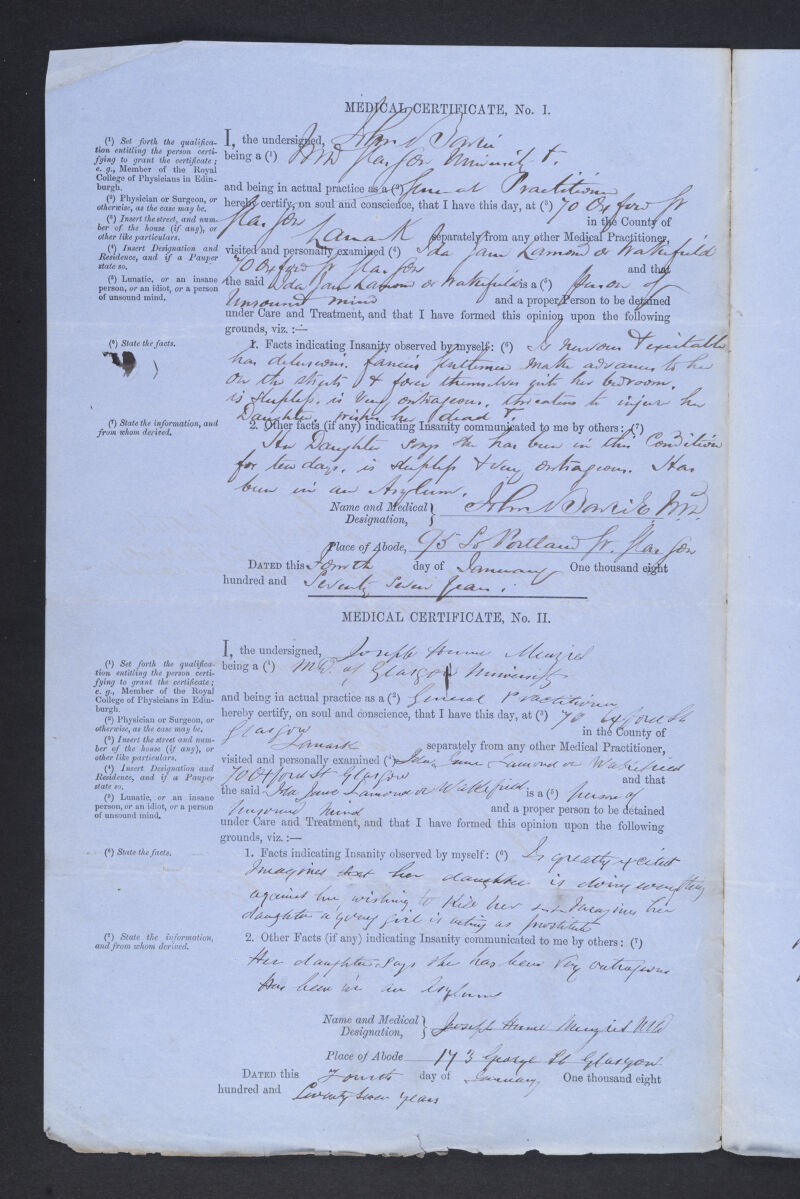 MEDICAL CERTIFICATE, No. I.
(¹) Set forth the qualifica-
tion entitling the person certi-
fying to grant the certificate;
e. g., Member of the Royal
College of Physicians in Edin-
burgh.
(²) Physician or Surgeon, or
otherwise, as the case may be.
(³) Insert the street, and num-
ber of the house (if any), or
other like particulars.
(⁴) Insert Designation and
Residence, and if a Pauper
state so.
(⁵) Lunatic, or an insane
person, or an idiot, or a person
of unsound mind.
I, the undersigned, John
being a (¹) MD Glasgow University &.
and being in actual practice as a (²) General Practitioner
hereby certify, on soul and conscience, that I have this day, at (³) 70 Oxford St
Glasgow in the County of
Lanark separately from any other Medical Practitioner,
visited and personally examined (⁴) Ida Jane Lamond or Wakefield
70 Oxford St Glasgow and that
the said Ida Jane Lamond or Wakefield is a (⁵) Person of
Unsound mind and a proper Person to be detained
under Care and Treatment, and that I have formed this opinion upon the following
grounds, viz. :—
(⁶) State the facts.
1. Facts indicating Insanity observed by myself: (⁶) Is nervous & excitable
has delusions. fancies gentlemen make advances to her
on the streets & force themselves into her bedroom.
is sleepless. is very outrageous. threatens to injure her
Daughter. wishes her dead &.
(⁷) State the information, and
from whom derived.
2. Other facts (if any) indicating Insanity communicated to me by others: (⁷)
Her Daughter says she has been in this Condition
for ten days. is sleepless & very outrageous. Has
been in an Asylum.
Name and Medical Designation, John MD
Place of Abode, 95 So Portland St. Glasgow
DATED this Fourth day of January One thousand eight
hundred and Seventy Seven Years.
MEDICAL CERTIFICATE, No. II.
(¹) Set forth the qualifica-
tion entitling the person certi-
fying to grant the certificate;
e. g., Member of the Royal
College of Physicians in Edin-
burgh.
(²) Physician or Surgeon, or
otherwise, as the case may be.
(³) Insert the street and num-
ber of the house (if any), or
other like particulars.
(⁴) Insert Designation and
Residence, and if a Pauper
state so.
(⁵) Lunatic, or an insane
person, or an idiot, or a person
of unsound mind.
I, the undersigned, Joseph Hume Menzies
being a (¹) M.D. of Glasgow University
and being in actual practice as a (²) General Practitioner
hereby certify, on soul and conscience, that I have this day, at (³) 70 Oxford St
Glasgow in the County of
Lanark separately from any other Medical Practitioner,
visited and personally examined (⁴) Ida Jane Lamond or Wakefield
70 Oxford St Glasgow and that
the said Ida Jane Lamond or Wakefield is a (⁵) person of
Unsound Mind and a proper person to be detained
under Care and Treatment, and that I have formed this opinion upon the following
grounds, viz. :—
(⁶) State the facts.
1. Facts indicating Insanity observed by myself: (⁶) Is greatly excited
Imagines that her daughter is doing everything
against her wishing to kill her Imagines her
daughter a young girl is acting as prostitute
(⁷) State the information,
and from whom derived.
2. Other Facts (if any) indicating Insanity communicated to me by others: (⁷)
Her daughter says she has been very outrageous
Has been in an Asylum
Name and Medical Designation, Joseph Hume Menzies MD
Place of Abode 173 George St Glasgow
DATED this Fourth day of January One thousand eight
hundred and Seventy Seven Years